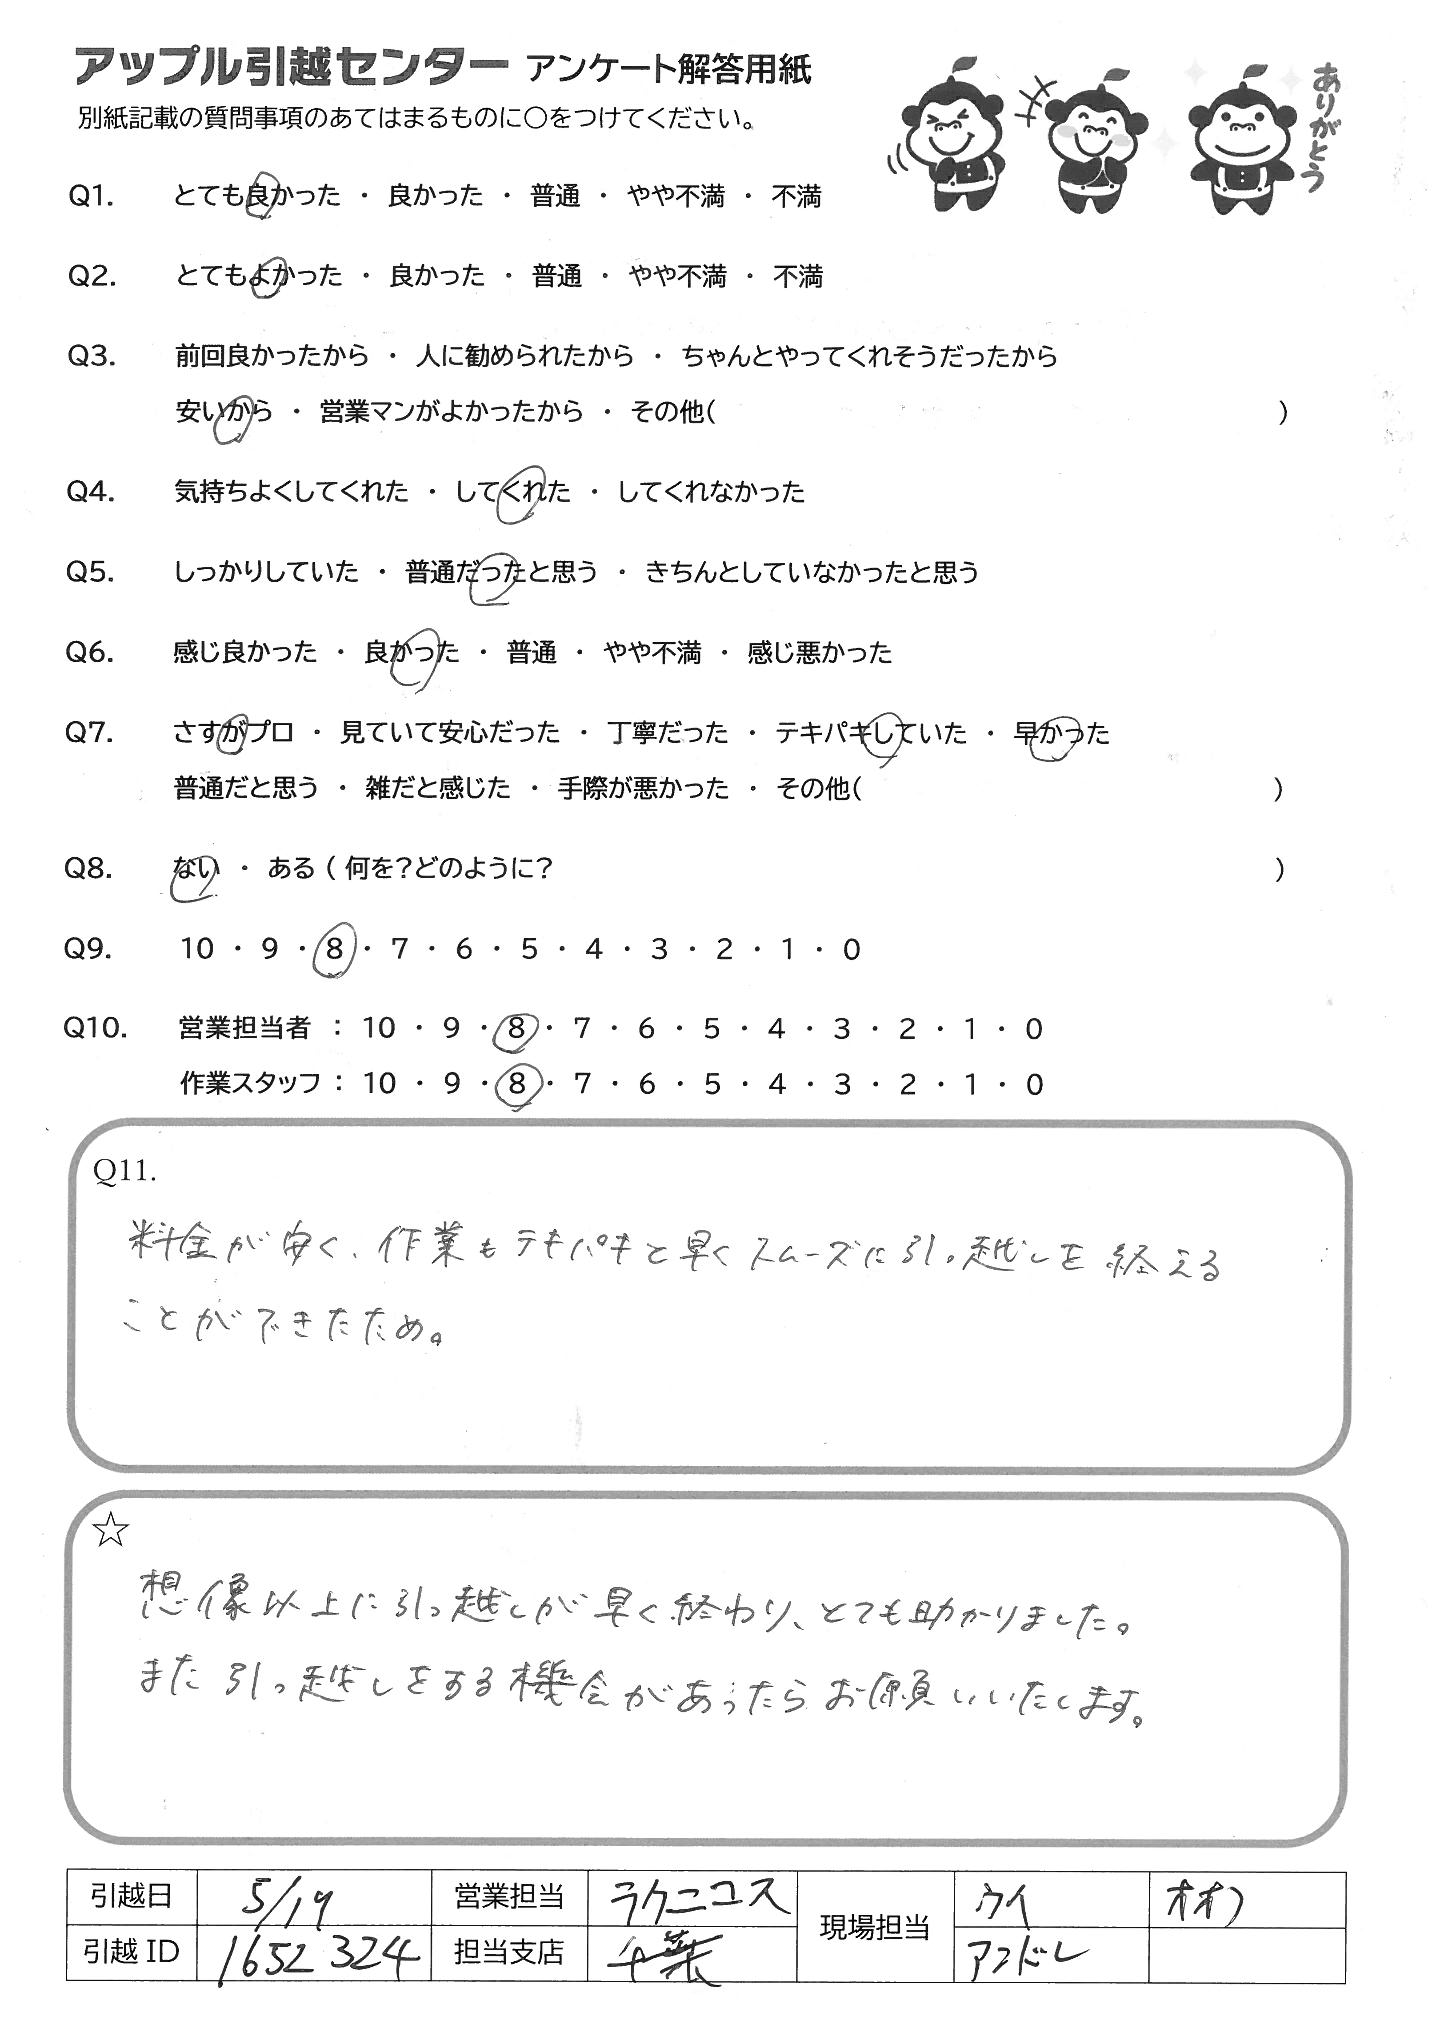 アップル引越センター アンケート解答用紙
別紙記載の質問事項のあてはまるものに○をつけてください。
ありがとう
Q1. とても良かった ・ 良かった ・ 普通 ・ やや不満 ・ 不満
Q2. とてもよかった ・ 良かった ・ 普通 ・ やや不満 ・ 不満
Q3. 前回良かったから ・ 人に勧められたから ・ ちゃんとやってくれそうだったから
安いから ・ 営業マンがよかったから ・ その他( )
Q4. 気持ちよくしてくれた ・ してくれた ・ してくれなかった
Q5. しっかりしていた ・ 普通だったと思う ・ きちんとしていなかったと思う
Q6. 感じ良かった ・ 良かった ・ 普通 ・ やや不満 ・ 感じ悪かった
Q7. さすがプロ ・ 見ていて安心だった ・ 丁寧だった ・ テキパキしていた ・ 早かった
普通だと思う ・ 雑だと感じた ・ 手際が悪かった ・ その他( )
Q8. ない ・ ある ( 何を?どのように? )
Q9. 10 ・ 9 ・ 8 ・ 7 ・ 6 ・ 5 ・ 4 ・ 3 ・ 2 ・ 1 ・ 0
Q10. 営業担当者 : 10 ・ 9 ・ 8 ・ 7 ・ 6 ・ 5 ・ 4 ・ 3 ・ 2 ・ 1 ・ 0
作業スタッフ : 10 ・ 9 ・ 8 ・ 7 ・ 6 ・ 5 ・ 4 ・ 3 ・ 2 ・ 1 ・ 0
Q11.
料金が安く、作業もテキパキと早くスムーズに引っ越しを終える
ことができたため。
☆
想像以上に引っ越しが早く終わり、とても助かりました。
また引っ越しをする機会があったらお願いいたします。
引越日 5/19 営業担当 ラクニコス 現場担当 ウイ オオノ
引越ID 1652324 担当支店 千葉 アンドレ